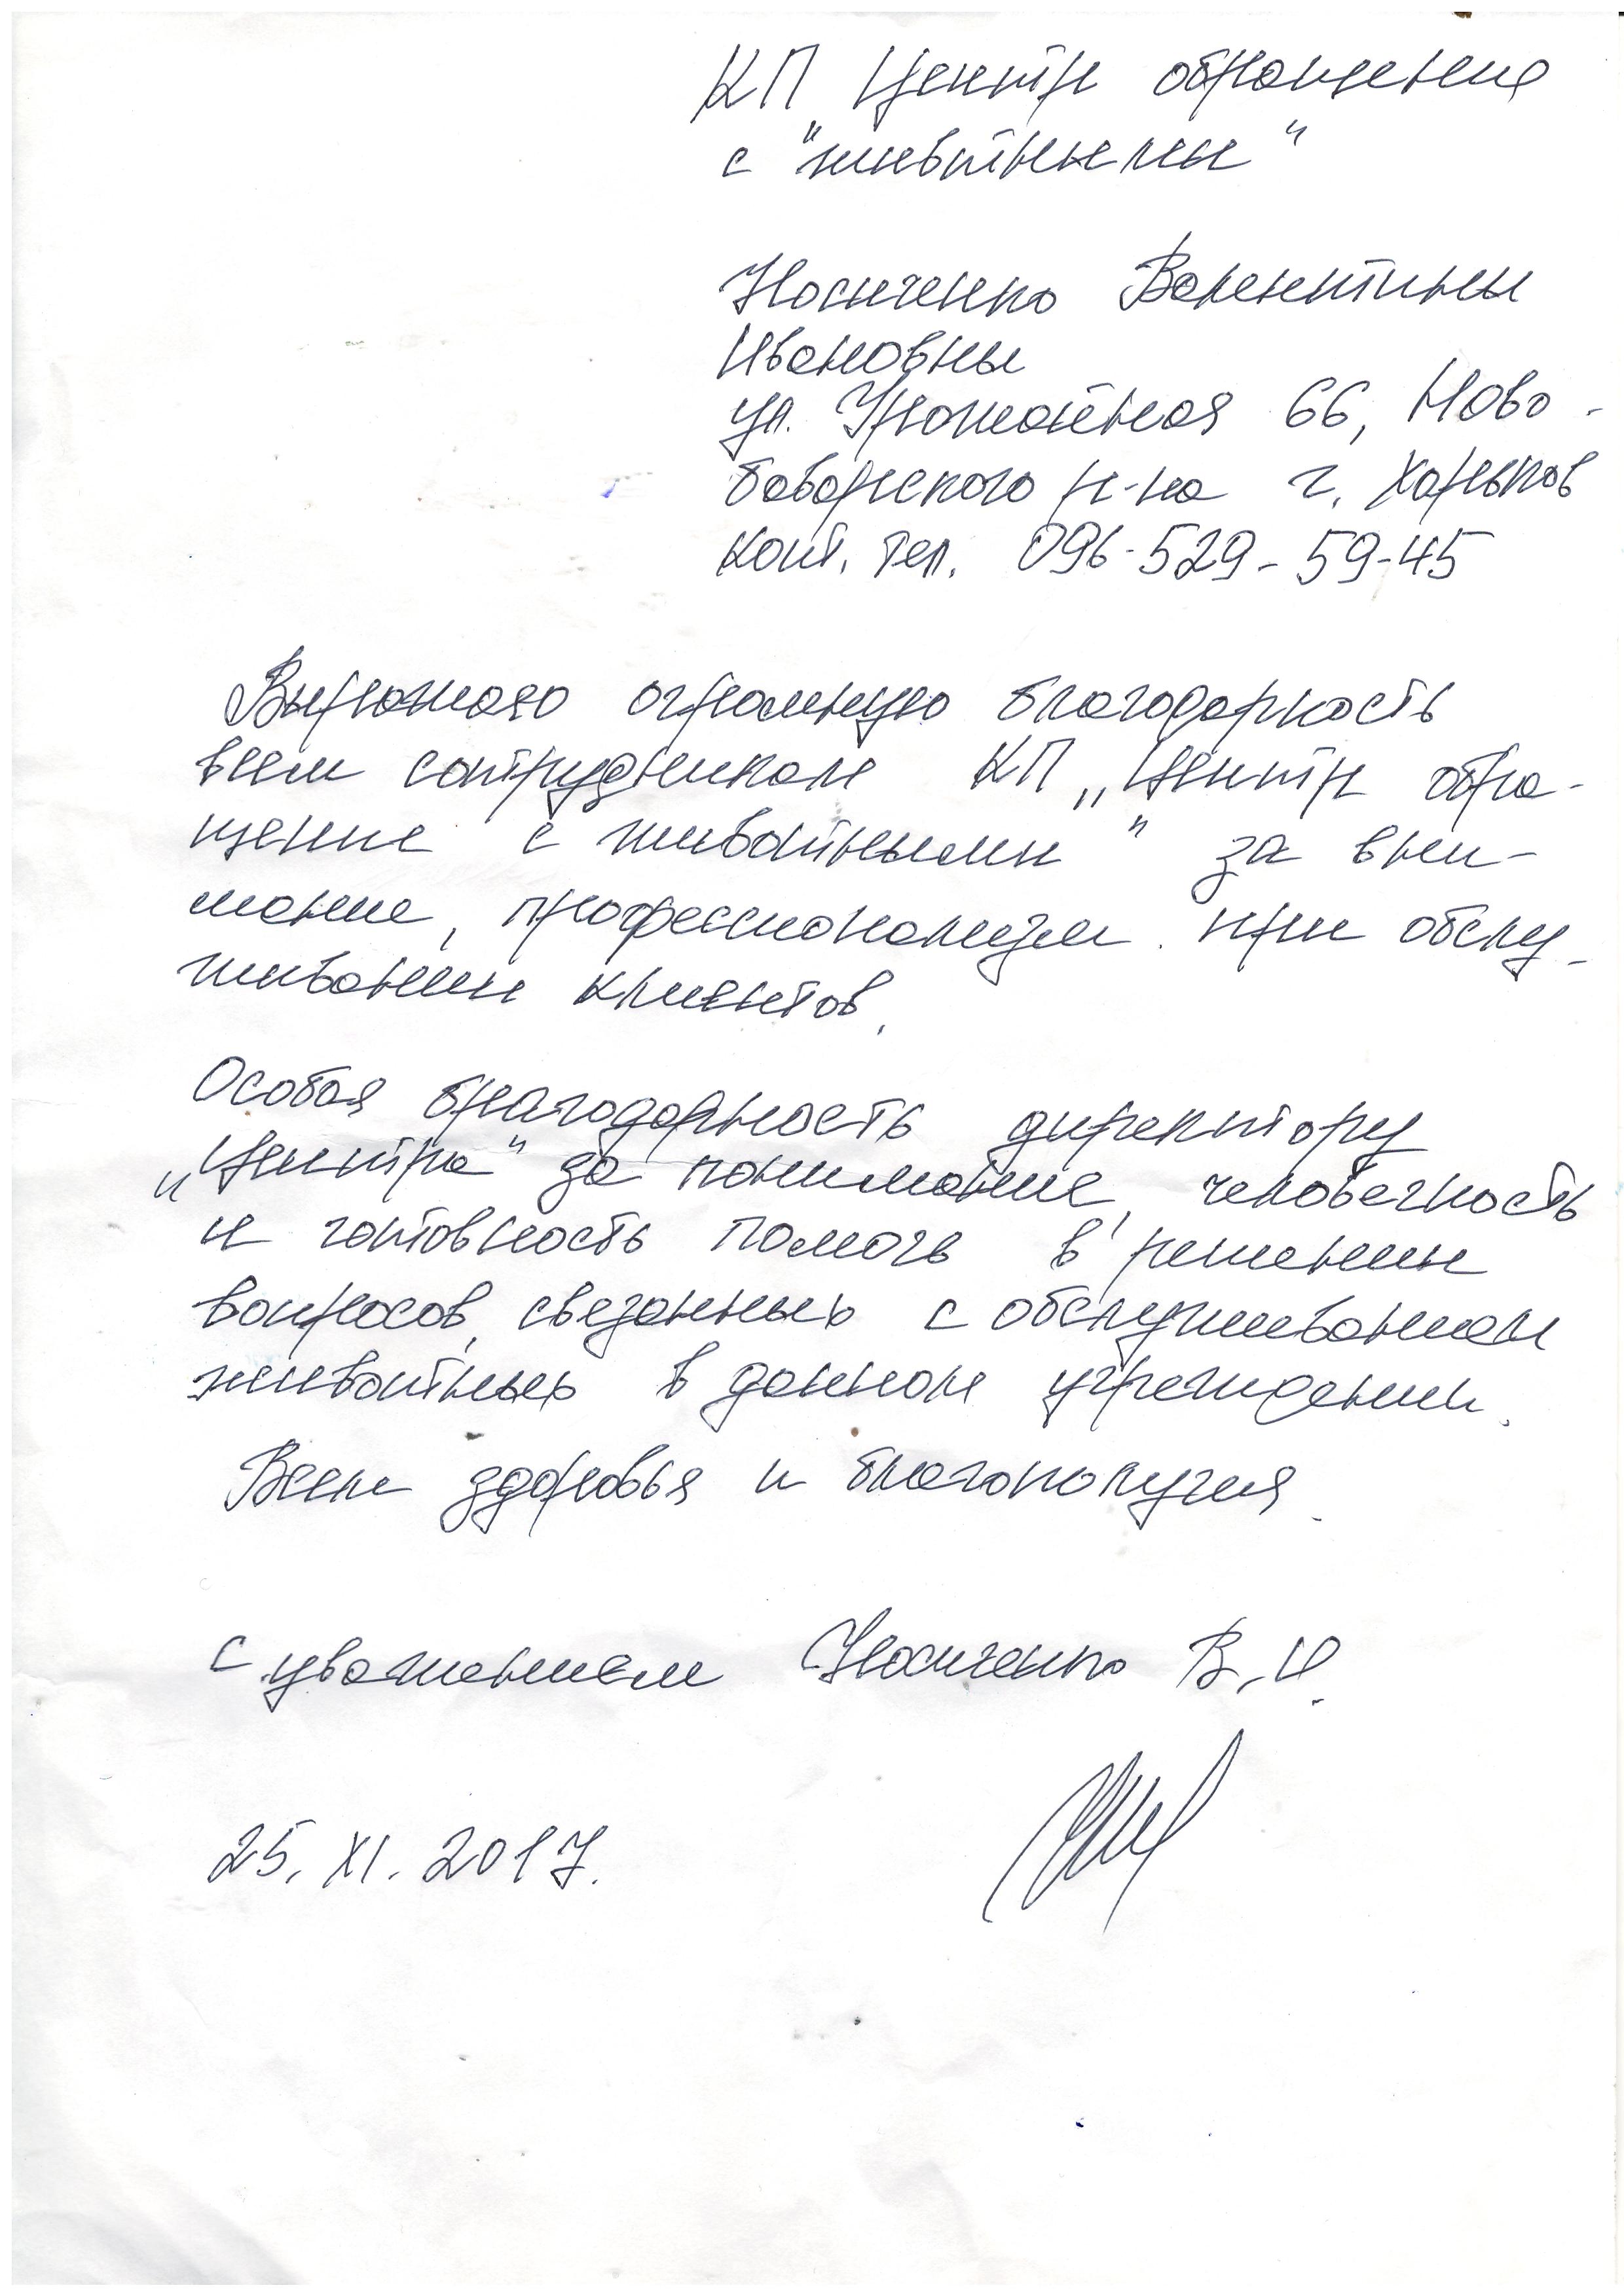 КП Центр обращение
с "живтными"
Носиченко Валентины
Ивановны
ул. Урожайная 66, Ново-
баварского р-на г. Харьков
конт. тел. 096-529-59-45
Выражаю огромную благодарность
всем сотрудникам КП „Центр обра-
щение с животными" за вни-
мание, профессионализм при обслу-
живании клиентов.
Особая благодарность директору
„Центра" за понимание, человечность
и готовность помочь в решении
вопросов, связанных с обслуживанием
животных в данном учреждении.
Всем здоровья и благополучия.
с уважением Носиченко В.И.
25. XI. 2017.